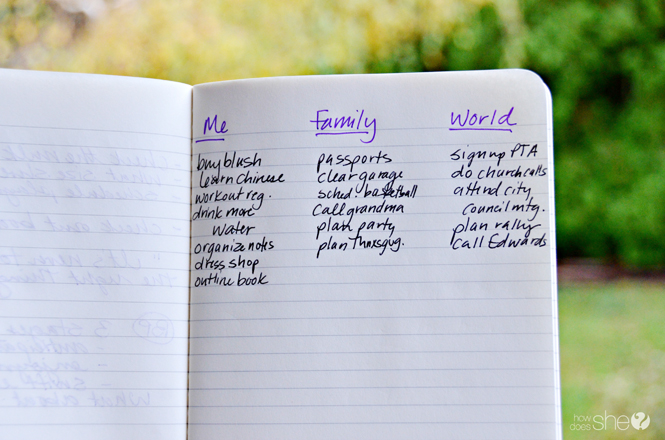 Me
buy blush
learn Chinese
workout reg.
drink more
water
organize notes
dress shop
outline book
Family
passports
clear garage
sched. basketball
call grandma
plan party
plan Thnxsgivg.
World
sign up PTA
do church calls
attend city
council mtg.
plan rally
call Edwards
how does she